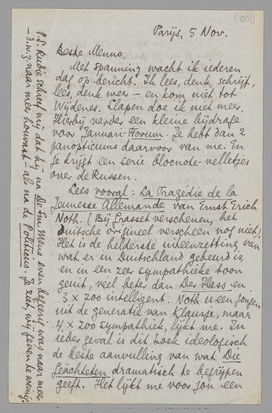 (1001)
Parijs, 5 Nov.
Beste Menno,
Met spanning wacht ik iederen
dag op bericht. Ik lees, denk, schrijf,
lees, denk weer – en kom niet tot
Wijdenes. Slapen doe ik niet meer.
Hierbij verder een kleine bijdrage
voor Januari-Forum: Je hebt dan 2
panopticums daarvoor van me. En
je krijgt een serie blocnote-velletjes
over de Russen.
Lees vooral: La Tragédie de la
Jeunesse Allemande van Ernst Erich
Noth. (Bij Grasset verschenen, het
Duitsche origineel verscheen nog niet.)
Het is de helderste uiteenzetting van
wat er in Duitschland gebeurd is,
en in een zeer sympathieke toon
geuit, veel beter dan Der Hass en
3 x zoo intelligent. Noth is een jongen
uit de generatie van Klausje, maar
4 x zoo sympathiek, lijkt me. In
ieder geval is dit boek ideologisch
de beste aanvulling van wat Die
Geächteten dramatisch te begrijpen
geeft. Het lijkt me voor jou een
P.S. Rudie schreef mij dat hij na De Sm. Mens even hevig was naar mee
– n.m.z. naar meer houvast – als na de Politicus. Je ziet, wij geven te weinig.